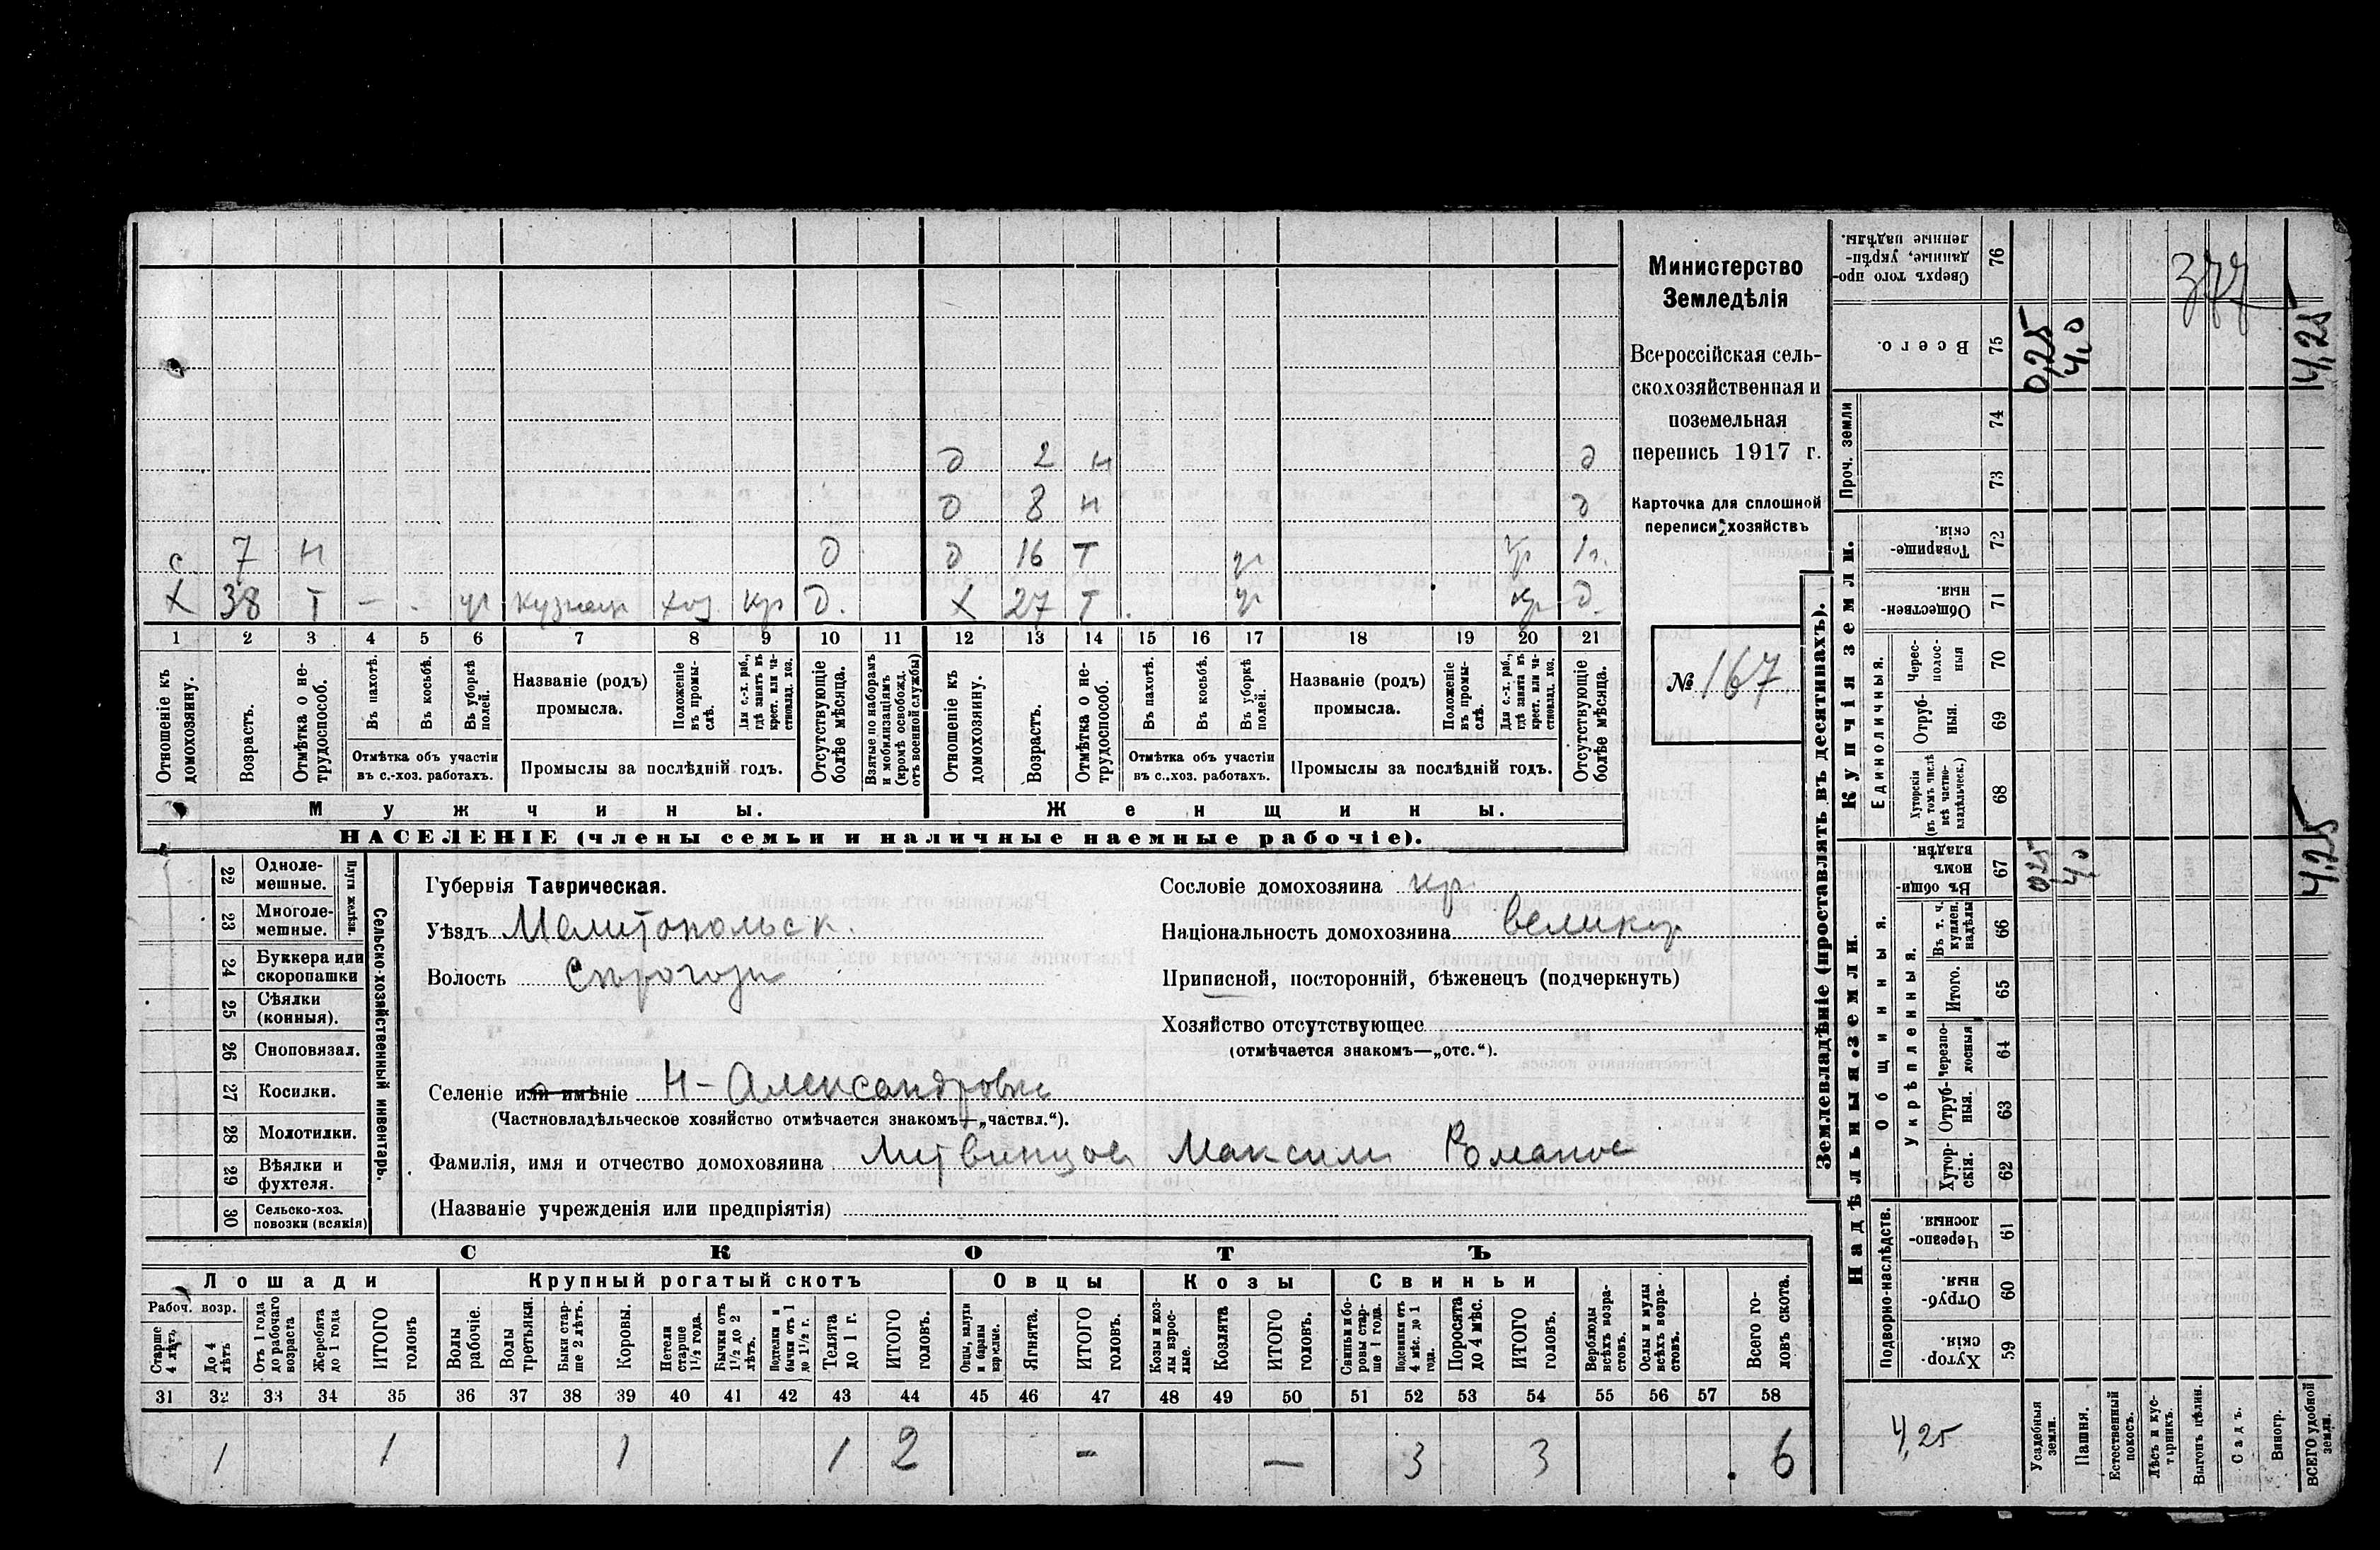 д 2 н д
д 8 н д
с 7 н д д 16 т уг кр 1г.
х 38 т — - уг кузнец хоз кр д. х 27 т . уг кр д.
1 2 3 4 5 6 7 8 9 10 11 12 13 14 15 16 17 18 19 20 21
Отношеніе къ домохозяину.
Возрастъ.
Отмѣтка о нетрудоспособ.
Въ пахотѣ.
Въ косьбѣ.
Въ уборкѣ полей.
Отмѣтка объ участіи въ с.-хоз. работахъ.
Названіе (родъ) промысла.
Положеніе въ промыслѣ.
Для с.-х. раб., гдѣ занятъ въ крест. или частновлад. хоз.
Промыслы за послѣдній годъ.
Отсутствующіе болѣе мѣсяца.
Взятые по наборамъ и мобилизаціямъ (кромѣ освобожд. отъ военной службы)
Отношеніе къ домохозяину.
Возрастъ.
Отмѣтка о нетрудоспособ.
Въ пахотѣ.
Въ косьбѣ.
Въ уборкѣ полей.
Отмѣтка объ участіи въ с..хоз. работахъ.
Названіе (родъ) промысла.
Положеніе въ промыслѣ.
Для с.-х. раб., гдѣ занята въ крест. или частновлад. хоз.
Промыслы за послѣдній годъ.
Отсутствующіе болѣе мѣсяца.
Мужчины.
Женщины.
НАСЕЛЕНІЕ (члены семьи и наличные наемные рабочіе).
Министерство
Земледѣлія
Всероссійская сель-
скохозяйственная и
поземельная
перепись 1917 г.
Карточка для сплошной
переписи хозяйствъ
№ 167
22 Одноле-мешные.
23 Многоле-мешные.
Плуги желѣзн.
24 Буккера или скоропашки
25 Сѣялки (конныя).
26 Сноповязал.
27 Косилки.
28 Молотилки.
29 Вѣялки и фухтеля.
30 Сельско-хоз. повозки (всякія)
Сельско-хозяйственный инвентарь.
Губернія Таврическая.
Уѣздъ Мелитопольск.
Волость
Селеніе или имѣніе Н-Александровка
(Частновладѣльческое хозяйство отмѣчается знакомъ—„частвл.“).
Фамилія, имя и отчество домохозяина Литвинцов Максим Романов
(Названіе учрежденія или предпріятія)
Сословіе домохозяина кр
Національность домохозяина великор
Приписной, посторонній, бѣженецъ (подчеркнуть)
Хозяйство отсутствующее
(отмѣчается знакомъ—„отс.“).
СКОТЪ
Лошади
Крупный рогатый скотъ
Овцы
Козы
Свиньи
Рабоч. возр.
Старше 4 лѣтъ
До 4 лѣтъ
Отъ 1 года до рабочаго возраста
Жеребята до 1 года
ИТОГО головъ
Волы рабочіе.
Волы третьяки.
Быки старше 2 лѣтъ.
Коровы.
Нетели старше 1½ года.
Бычки отъ 1½ до 2 лѣтъ.
Подтелки и бычки отъ 1 до 1½ г.
Телята до 1 г.
ИТОГО головъ.
Овцы, валухи и бараны взрослые.
Ягнята.
ИТОГО головъ.
Козы и козлы взрослые.
Козлята
ИТОГО головъ.
Свиньи и боровы старше 1 года.
Подсвинки отъ 4 мѣс. до 1 года.
Поросята до 4 мѣс.
ИТОГО головъ.
Верблюды всѣхъ возрастовъ.
Ослы и мулы всѣхъ возрастовъ.
Всего головъ скота.
31 32 33 34 35 36 37 38 39 40 41 42 43 44 45 46 47 48 49 50 51 52 53 54 55 56 57 58
1 1 1 1 2 - — 3 3 6
Землевладѣніе (проставлять въ десятинахъ).
Надѣльныя земли.
Купчія земли.
Проч. земли
Подворно-наслѣдств.
Общинныя.
Укрѣпленныя.
Единоличныя.
Сверхъ того проданные, укрѣпленные надѣлы. 76
Всего. 75 0,25 4,0 4,25
74
73
Товарищескія. 72
Общественныя. 71
Чересполосныя 70
Отрубныя. 69
Хуторскія (въ томъ числѣ всѣ частновладѣльческ.) 68
Въ общинномъ владѣн. 67 0,25 4,0 4,25
Въ т. ч. куплен. надѣлы 66
Итого. 65
Черезполосныя 64
Отрубныя. 63
Хуторскія. 62
Черезполосныя. 61
Отрубныя 60
Хуторскія. 59
4,25
Усадебныя земли.
Пашня.
Естественный покосъ.
Лѣсъ и кустарникъ.
Выгонъ цѣлин.
Садъ.
Виногр.
ВСЕГО удобной земли.